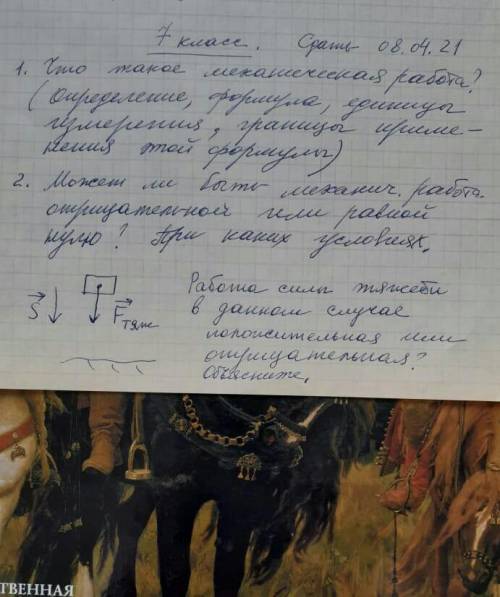 7 класс. Сдать 08.04.21
1. Что такое механическая работа?
(Определение, формула, единицы
измерения, границы приме-
нения этой формулы)
2. Может ли быть механич. работа
отрицательной или равной
нулю? При каких условиях.
S Fтяж
Работа силы тяжести
в данном случае
положительная или
отрицательная?
Объясните.
ТВЕННАЯ